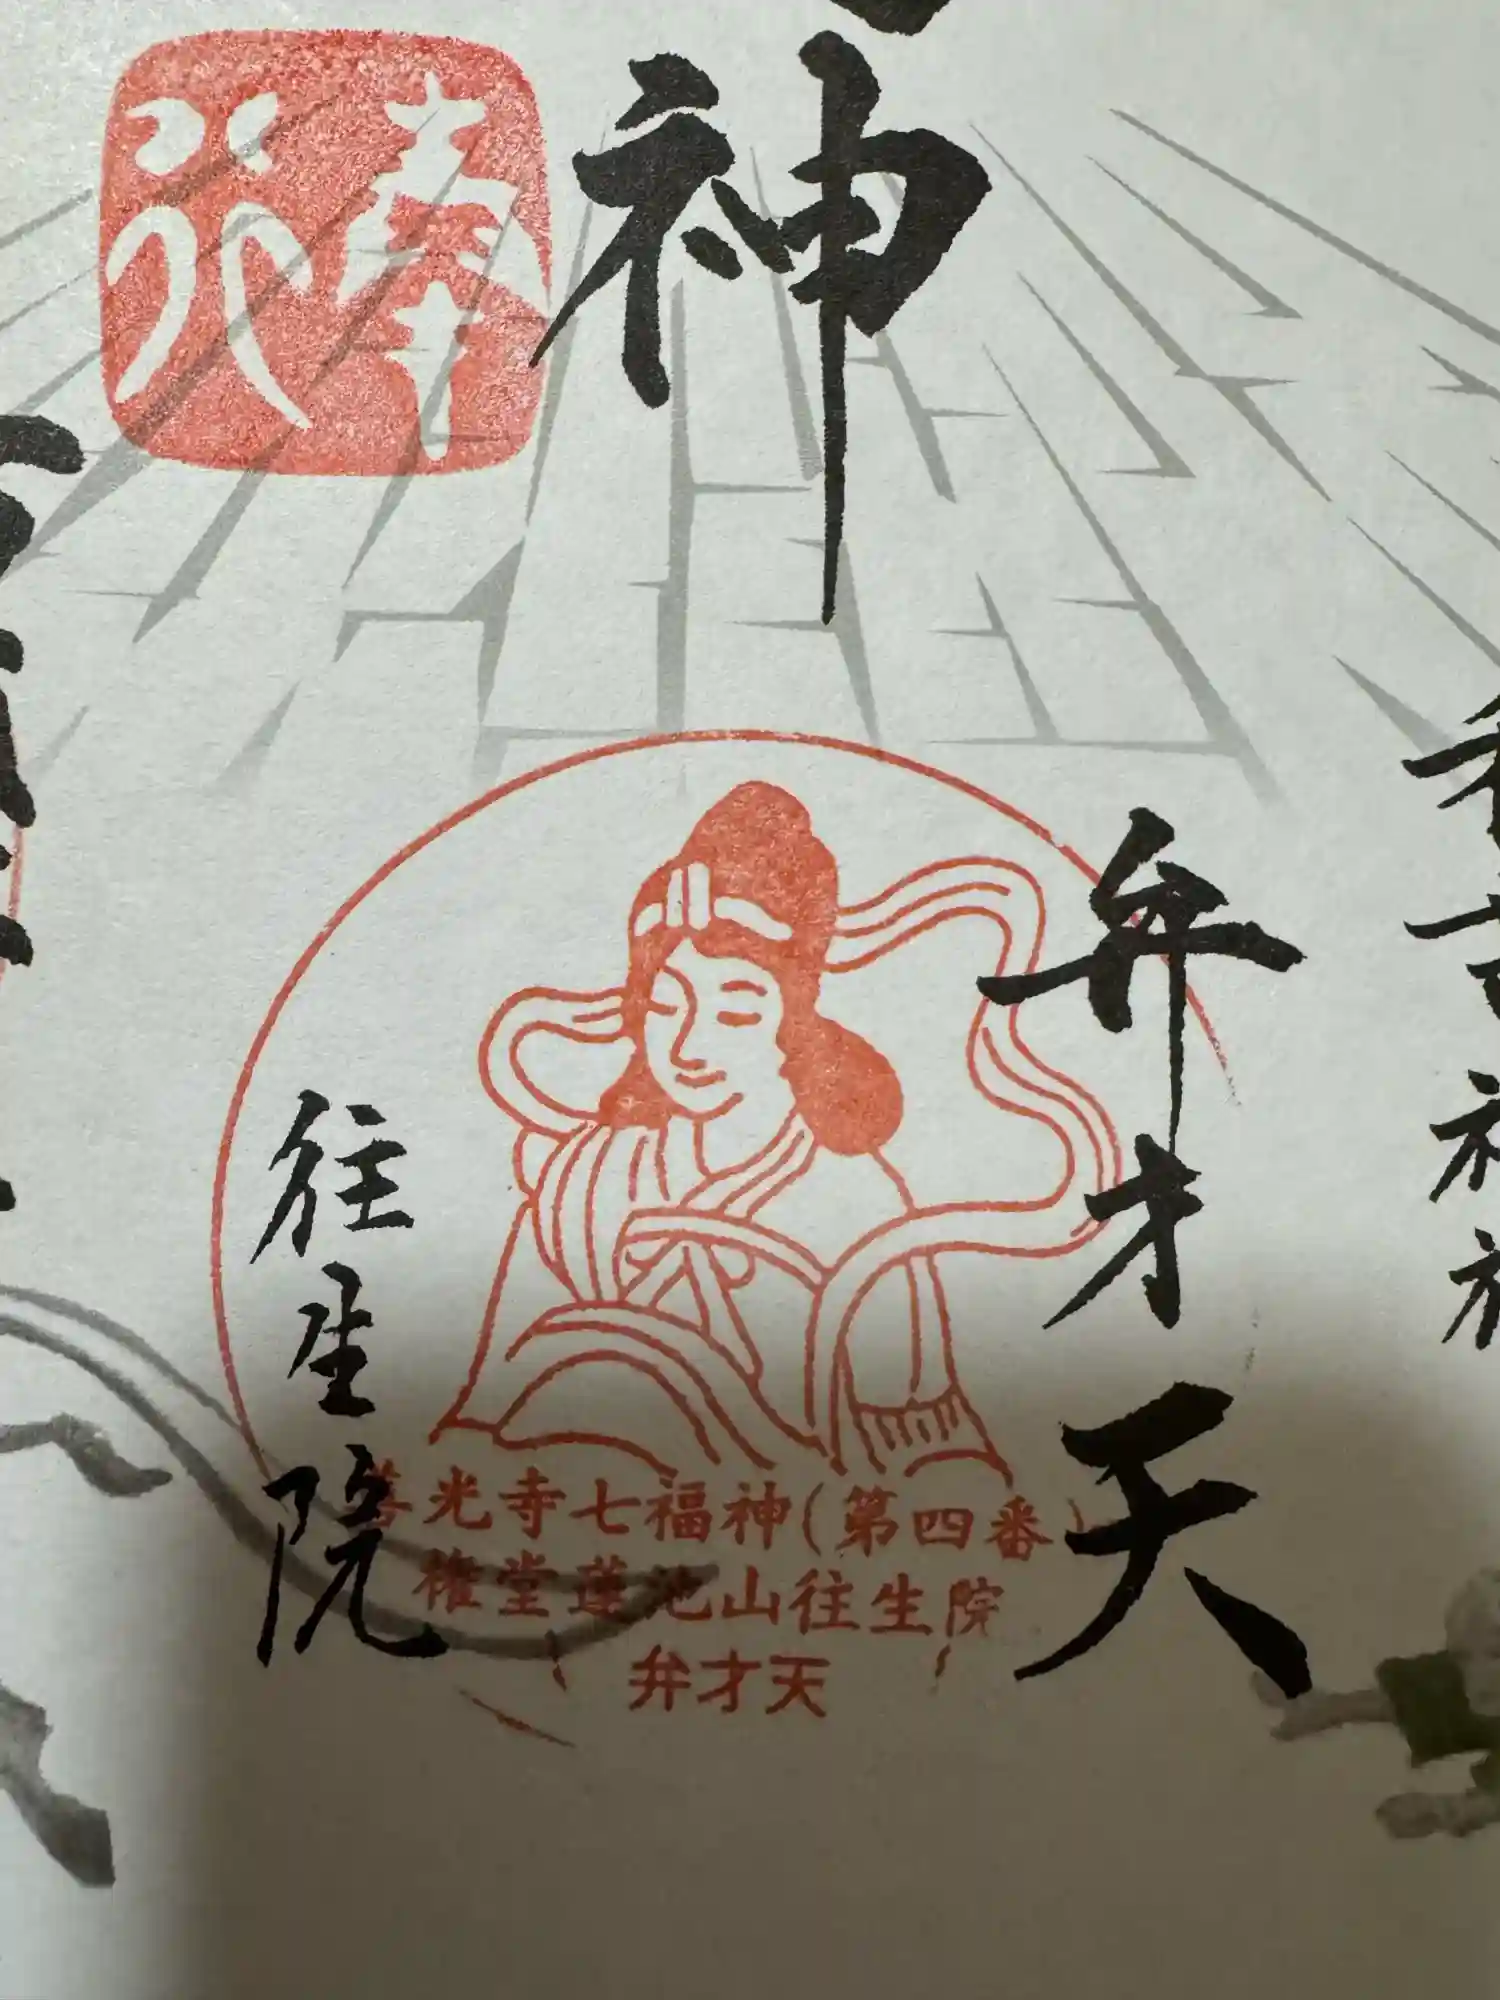 神
奉行
弁才天
往生院
善光寺七福神(第四番)
権堂蓮池山往生院
弁才天